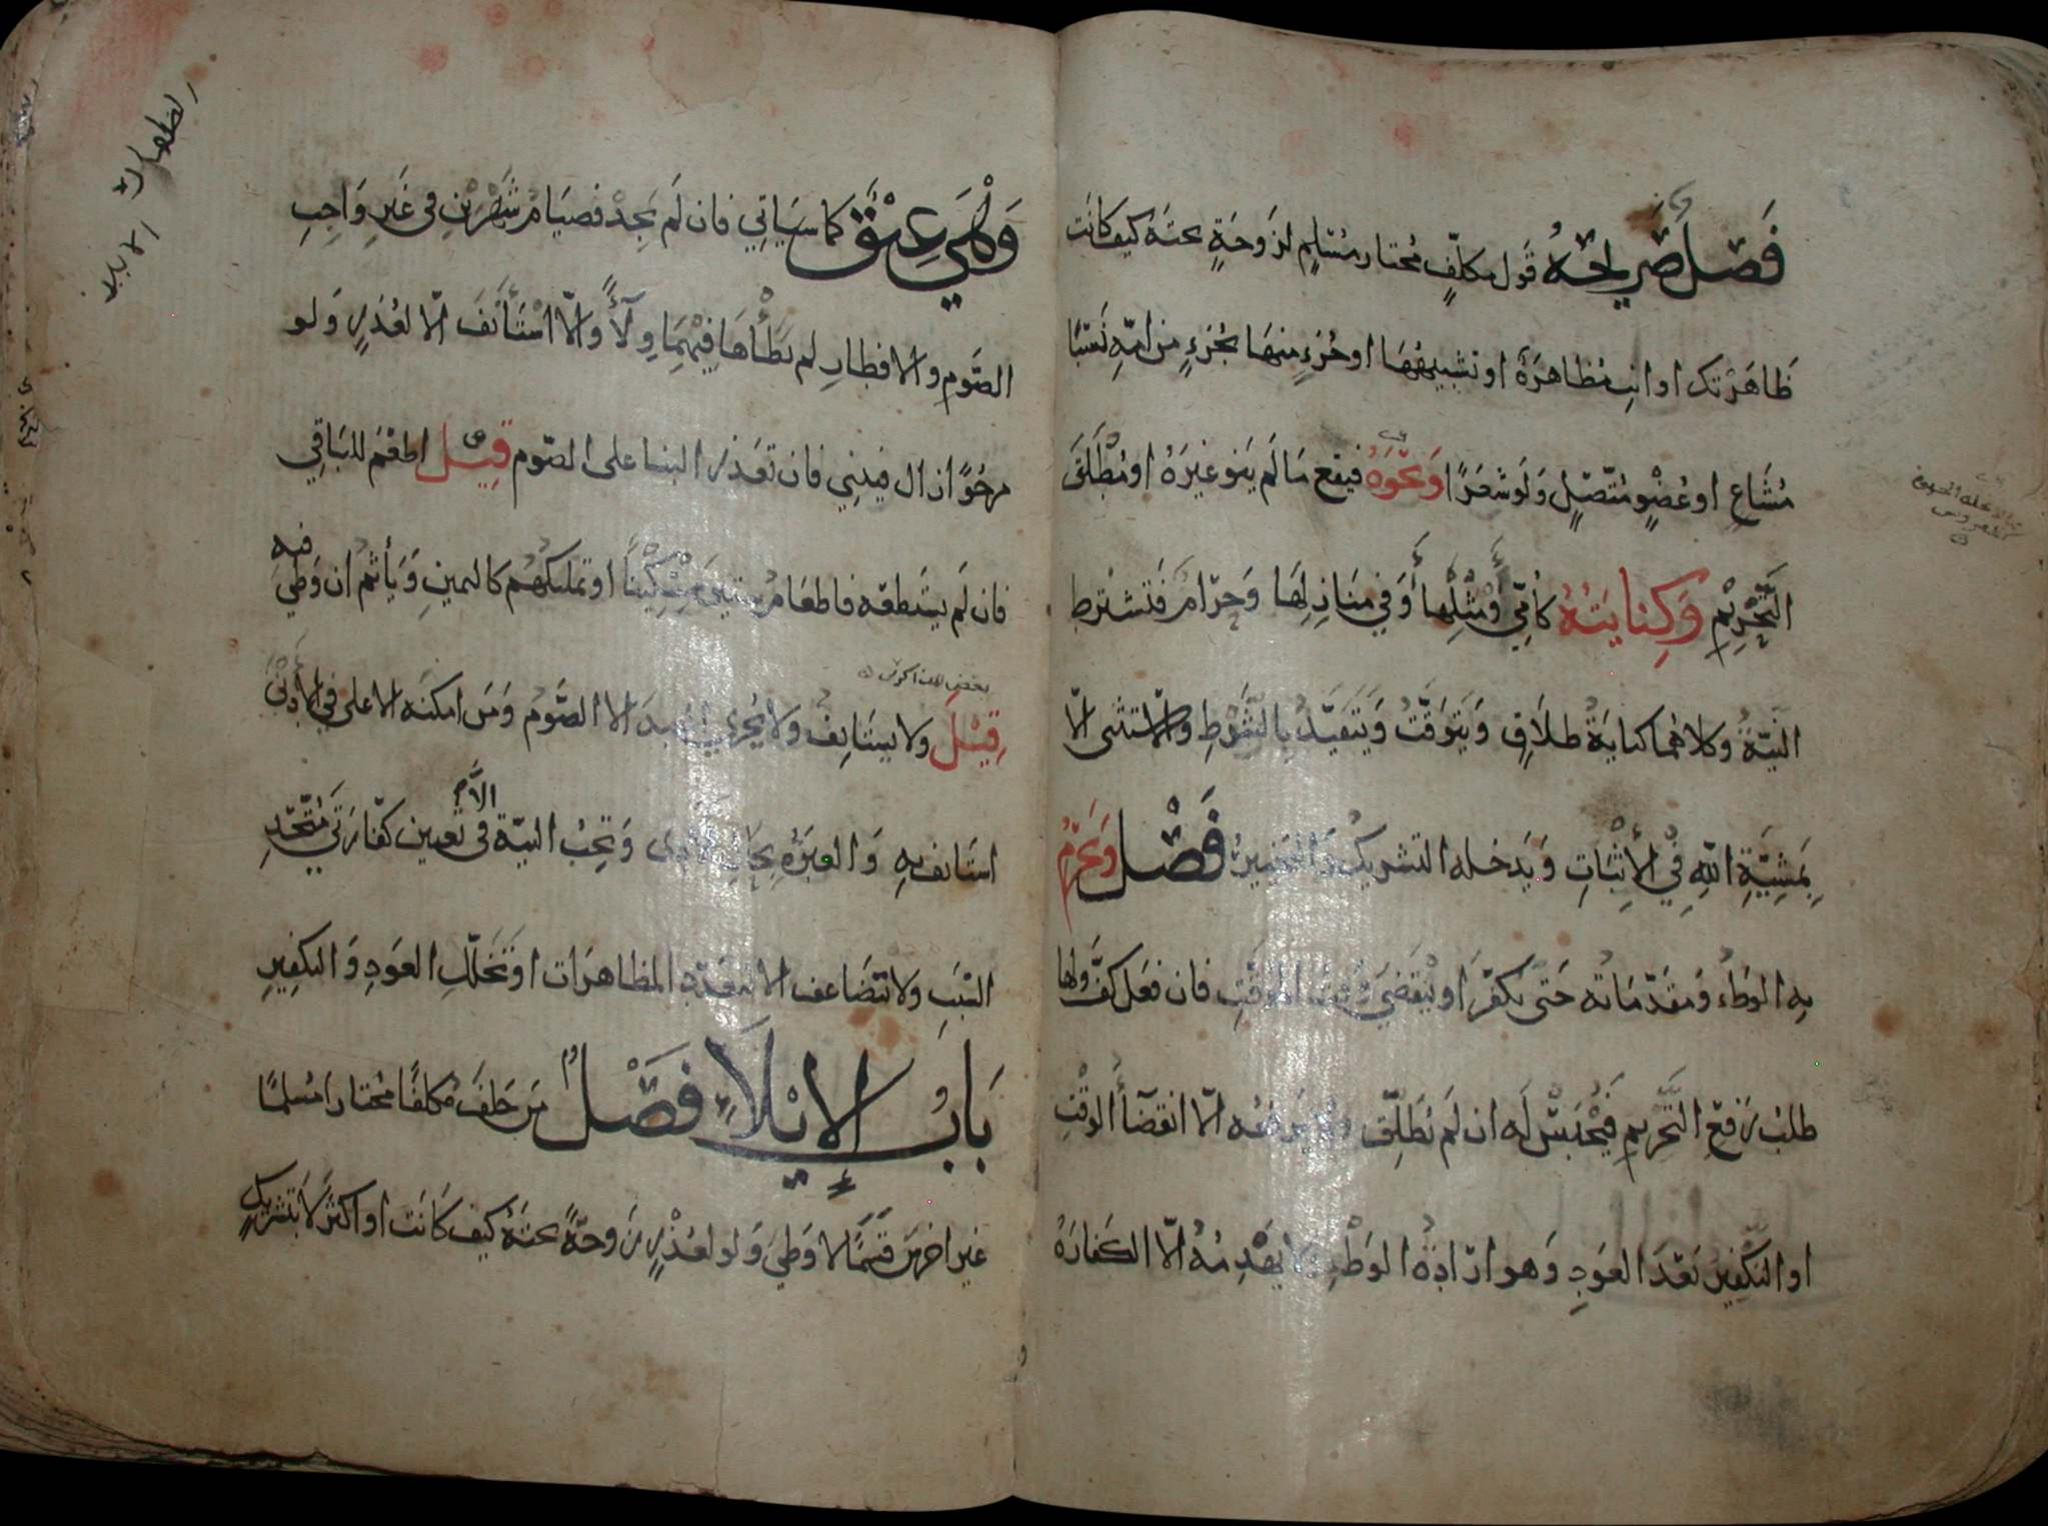 فَصْل صَرِيحُهُ قَول مكلّفٍ مُختار مُسْلِمٍ لزَوجَةٍ تحتَهُ كيفَ كانَت
ظَاهَرْتك او انتِ مُظاهرَةٌ او تشبيهُهَا او جُزءٍ منهَا بجُزءٍ من امّهِ نَسَبًا
مُشَاعٍ او عُضْوٍ مُتّصِلٍ وَلَو شعَرًا وَنحْوَهُ فيقع مَا لَم يَنوِ غيرَهُ او مُطْلَقَ
التَّحْرِيْمِ وَكِنَايَتُهُ كأمّي أو مثْلِهَا أو في مَنَازِلِهَا وَحَرَامٌ فتشترط
النيّةُ وكلاهُما كنايَةُ طلَاقٍ وَيَتوَقَّتُ وَيَتَقيَّدُ بِالشّرْطِ والاستثنى الاّ
بِمَشِيّةِ اللّهِ فِي الأِثْبَاتِ وَيَدخله التشريكُ وَالتخييرُ فَصْل وَيَحْرُمُ
بِهِ الوَطْءُ وَمقدّمَاتُه حَتى يكفّرَ او يَنقَضيَ وَقتُ المؤقّتِ فان فعَل كفَّ ولها
طلبُ رَفعِ التَّحْرِيم فَيُحْبَسُ لَه ان لَم يُطَلّق وَلا يَرفعُه الاّ انقضَآءُ الوَقْتِ
او التكفيرُ بَعْدَ العَودِ وَهو ارَادةُ الوَطْءِ وَلا يَهْدِمُهُ الاّ الكفارَةُ
الظهار
الايلا
وَهْيَ عِتْقٌ كما سَيَاتِي فان لَم يَجِدْ فصيَامُ شَهْرَيْنِ في غَيرِ وَاجبِ
الصَّومِ والافطارِ لم يَطَأْهَا فِيْهِمَا وِلَآءً وَالاّ اسْتَأْنَفَ الاّ لعُذرٍ وَلو
مرجُوًّا زال فيبنِي فان تعَذر البنا على الصّوم قِيْلَ اطعَمَ للبَاقِي
فان لَم يسْتَطعْه فاطعَامُ ستين مِسْكِيْنًا او تمليكُهُم كاليمينِ وَيَأثمُ ان وَطِئَ فيه
قِيْلَ ولا يستَانِفُ ولا يُجزي العَبدَ الا الصَّومُ وَمَن امكنَه الاعلى في الأَدْنَى
استَانفَ بهِ وَالعِبرَةُ بِحَالِ الأَدَاء وَتجِبُ النيّة الاّ في تعيين كفّارَتَي مُتّحِدِ
السّبَبِ ولا تتضَاعف الا لتعَدّدِ المظاهرَات او تَخَلّلِ العَودِ وَالتكفيرِ
بَابُ الإِيْلَاءِ فَصْلٌ مَن حَلفَ مُكلفًا مختارا مُسْلمًا
غيرَ اخرَسَ قَسَمًا لا وَطِئَ وَلو لعُذْرٍ زَوجَةً تحتَهُ كيفَ كَانَت او اكثرَ لا بتَشريكٍ